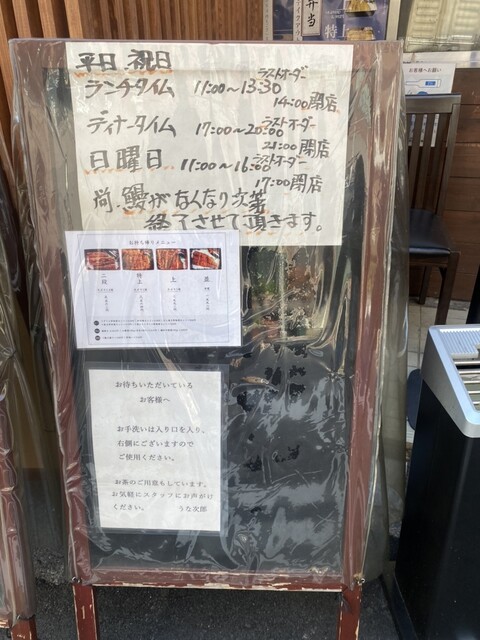 平日 祝日
ランチタイム 11:00〜13:30 ラストオーダー
14:00閉店
ディナータイム 17:00〜20:00 ラストオーダー
21:00閉店
日曜日 11:00〜16:00 ラストオーダー
17:00閉店
尚、鰻がなくなり次第
終了させて頂きます。
お持ち帰りメニュー
二段 特上 上 並
お待ちいただいている
お客様へ
お手洗いは入り口を入り、
右側にございますので
ご使用ください。
お茶のご用意もしています。
お気軽にスタッフにお声がけ
ください。 うな次郎
弁当
特上
お客様へお願い